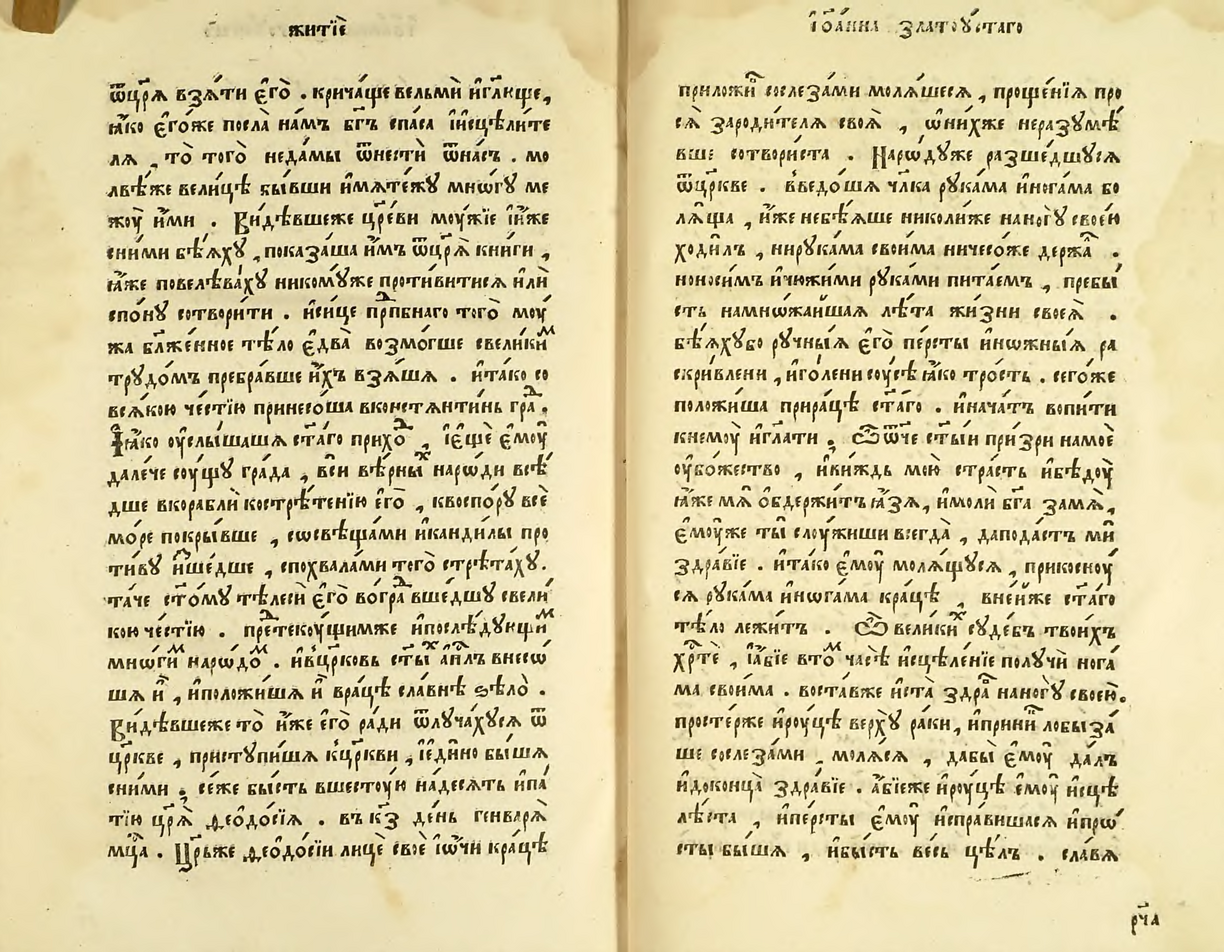 житїѐ
ѿцр҃ѧ взѧ́ти є҆го̀ . крича́ще вельмѝ и҆гл҃юще,
ꙗ҆́ко є҆го́же посла̀ на́мъ бг҃ъ спа́са и҆и҆сцѣли́те
лѧ , то̀ того̀ неда́мы ѿнестѝ ѿна́съ . мо
лвѣ́же вели́цѣ бы́вши и҆мѧте́жꙋ мно́гꙋ ме
жоу̀ и҆́ми . Ви́дѣвшеже цр҃еви моу́жїе и҆и҆́же
сни́ми бѣ́ѧхꙋ , показа́ша и҆́мъ ѿцр҃ѧ̀ кни́ги ,
ꙗ҆́же повелѣва́хꙋ никомꙋ́же проти́витисѧ и҆лѝ
спо́нꙋ сотвори́ти . и҆си́це прпⷣбнаго того̀ моу́
жа бл҃же́нное тѣ́ло є҆два̀ возмо́гше свели́киⷨ
трꙋдо́мъ пребра́вше и҆́хъ взѧ́шѧ . и҆та́ко со
всѧ́кою че́стїю принесо́ша вконстѧнти́нь граⷣ .
Ꙗ҆́ко оу҆слы́шашѧ ст҃а́го прихоⷣ , і҆є҆щѐ є҆моу̀
дале́че соу́щꙋ гра́да , всѝ вѣ́рныⷯ наро́ди всѣ́
дше вкораблѝ кострѣ́тенїю є҆го̀ , квоспо́рꙋ всѐ
мо́ре покры́вше , сѡсвѣща́ми и҆канди́лы про
ти́вꙋ и҆ше́дше , спохвала́ми того̀ стрѣта́хꙋ .
та́че ст҃о́мꙋ тѣлесѝ є҆го̀ вограⷣ вше́дшꙋ свели́
кою че́стїю . преⷣтекоу́щимже и҆послѣ́дꙋющиⷨ
мно́гиⷨ наро́доⷨ . и҆вцр҃ковь ст҃ы́ⷯ а҆п҃лъ внесо́
шѧ и҆̀ , и҆положи́шѧ и҆̀ вра́цѣ сла́внѣ ѕѣлѡ̀ .
Ви́дѣвшеже то̀ и҆́же є҆го̀ ра́ди ѿлꙋча́хꙋсѧ ѿ
цр҃кве , пристꙋпи́шѧ кцр҃кви , і҆є҆ди́но бы́шѧ
сни́ми . се́же бы́сть вшесто́ую на́десѧть и҆па́
тїю цр҃ѧ̀ ѳеѻдо́сїѧ . въ к҃з де́нь генварѧ̀
мц҃а . Цр҃ьже ѳеѻдо́сїи лицѐ своѐ і҆ѻ҆́чи кра́цѣ
і҆ѻ҆а́нна златоꙋ́стаго
приложи́ⷡ сослеза́ми молѧ́шесѧ , проще́нїѧ про
сѧ̀ зароди́телѧ своѧ̀ , ѡ҆ни́хже неразꙋмѣ́
вше сотвори́ста . Наро́дꙋже разше́дшꙋсѧ
ѿцр҃кве . введо́шѧ чл҃ка рꙋка́ма и҆нога́ма бо
лѧ́ща , и҆́же небѣ́ѧше николи́же наногꙋ̀ свое́ю
ходи́лъ , нирꙋка́ма свои́ма ничесо́же держа́ⷧ .
ноноси́мъ и҆чюжи́ми рꙋка́ми пита́емъ , пребы́
сть намно́жайшаѧ лѣ́та жи́зни своеѧ̀ .
бѣ́ѧхꙋбо рꙋчны́ѧ є҆го̀ пе́рсты и҆но́жныѧ ра
скривле́ни , и҆го́лени соу́сѣ ꙗ҆́ко тро́сть . сего́же
положи́ша прира́цѣ ст҃а́го . и҆нача́тъ вопи́ти
кнемоу̀ и҆гл҃ати , Ѽѿче ст҃ы́и при́зри намоѐ
оу҆бо́жество , и҆ви́ждь мою̀ стра́сть и҆бѣ́доу
ꙗ҆́же мѧ̀ о҆бдержи́тъ ꙗ҆́зѧ , и҆молѝ бг҃а замѧ̀,
є҆моу́же ты̀ слоу́жиши всегда̀ , дапода́стъ мѝ
здра́вїе . и҆та́ко є҆моу̀ молѧ́щꙋсѧ , прикосноу́
сѧ рꙋка́ма и҆нога́ма кра́цѣ , вне́йже ст҃а́го
тѣ́ло лежи́тъ . Ѽ вели́киⷯ сꙋде́бъ твои́хъ
хр҃тѐ , і҆а҆́бїе втоⷨ ча́сѣ и҆сцѣле́нїе получѝ нога́
ма свои́ма . воста́вже и҆ста̀ здраⷡ наногꙋ̀ свое́ю.
просте́рже и҆роу́цѣ ве́рхꙋ ра́ки, и҆прини́к лобыза́
ше сослеза́ми , молѧ́сѧ , дабы̀ є҆моу̀ да́лъ
и҆доконца̀ здра́вїе . а҆́бїеже и҆роу́цѣ є҆моу̀ и҆сцѣ
лѣ́ста , и҆пе́рсты є҆моу̀ и҆спра́вишасѧ и҆про́
сты бы́шѧ , и҆бы́сть ве́сь цѣ́лъ . сла́вѧ
рч҃а